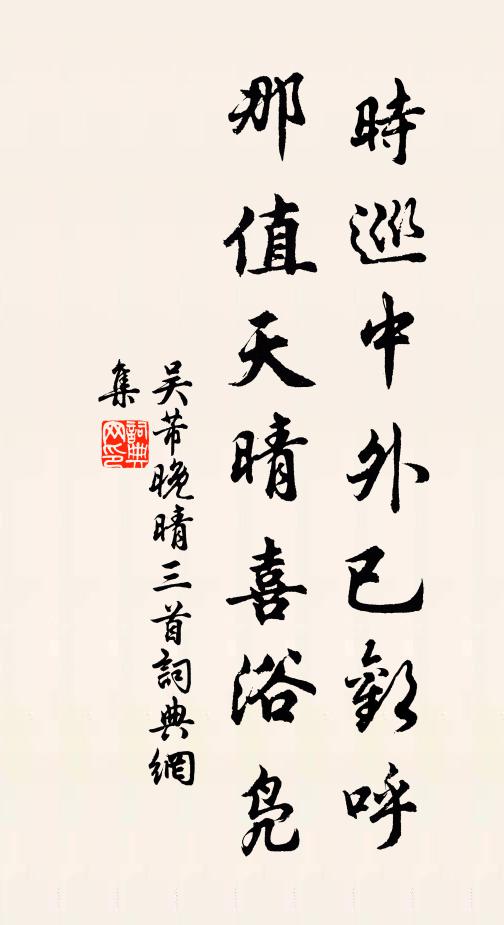 時巡中外已歡呼
那值天晴喜浴凫
吴芾晚晴三首詞典網
集
詞典
网印